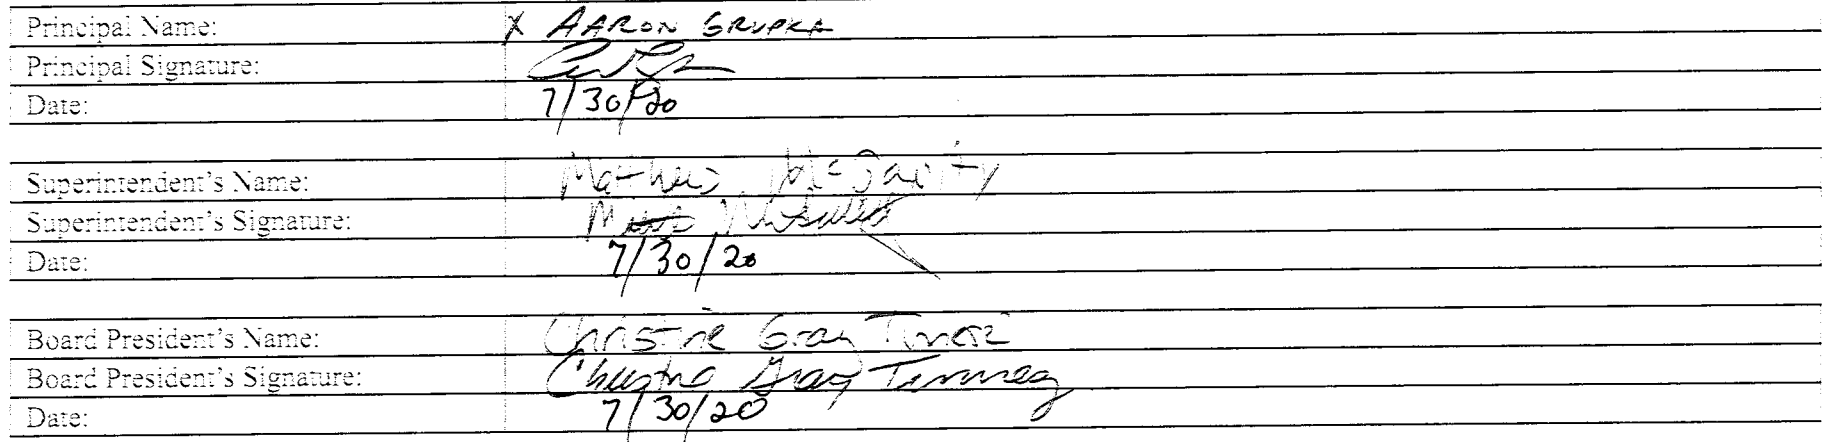 Principal Name: X AARON GRUPKA
Principal Signature:
Date: 7/30/20
Superintendent's Name: Mathew McGarity
Superintendent's Signature:
Date: 7/30/20
Board President's Name: Christine Gray
Board President's Signature: Christine Gray
Date: 7/30/20